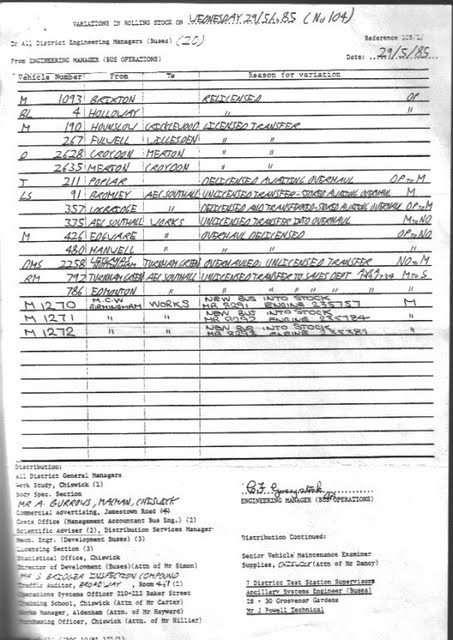 VARIATIONS IN ROLLING STOCK ON WEDNESDAY 29/5/85 (No 104)
To All District Engineering Managers (Buses) (20)
Reference
From ENGINEERING MANAGER (BUS OPERATIONS)
Date: 29/5/85
Vehicle Number From To Reason for variation
M 1093 BRIXTON RELICENSED OP
BL 4 HOLLOWAY " "
M 190 HOUNSLOW CRICKLEWOOD LICENSED TRANSFER
267 FULWELL WILLESDEN " "
D 2628 CROYDON MERTON " "
2635 MERTON CROYDON " "
T 211 POPLAR DELICENSED AWAITING OVERHAUL OP TO M
LS 91 BROMLEY AEC SOUTHALL UNLICENSED TRANSFER-STORED AWAITING OVERHAUL M
357 UXBRIDGE " DELICENSED AND TRANSFERED-STORED AWAITING OVERHAUL OP TO M
335 AEC SOUTHALL WORKS UNLICENSED TRANSFER INTO OVERHAUL M TO NO
M 426 EDGWARE " OVERHAUL DELICENSED OP TO NO
480 HANWELL " " " "
DMS 2258 LEYLANDS NOTTINGHAM TURNHAM GREEN OVERHAULED: UNLICENSED TRANSFER NO TO M
RM 797 TURNHAM GREEN AEC SOUTHALL UNLICENSED TRANSFER TO SALES DEPT M TO S
786 EDMONTON " " " " " " "
M 1270 M.C.W BIRMINGHAM WORKS NEW BUS INTO STOCK M
MR 2291 ENGINE 235757
M 1271 " " NEW BUS INTO STOCK
MR 2292 ENGINE 235784
M 1272 " " NEW BUS INTO STOCK
MR 2293 ENGINE 235381
Distribution:
All District General Managers
Work Study, Chiswick (1)
Body Spec. Section
MR A. BURROWS, MACMAN, CHISWICK
Commercial Advertising, Jamestown Road
Costs Office (Management Accountant Bus Eng.) (2)
Scientific Adviser (2), Distribution Services Manager
Mech. Engr. (Development Buses) (3)
Licensing Section (3)
Statistical Office, Chiswick
Director of Development (Buses)(Attn of Mr Simon)
MR S BRIDGER INSPECTION COMPOUND
Traffic Auditor, BROADWAY, Room
Operations Systems Officer 210-212 Baker Street
Training School, Chiswick (Attn of Mr Carter)
Works Manager, Aldenham (Attn of Mr Hayward)
Purchasing Officer, Chiswick (Attn. of Mr Hillier)
ENGINEERING MANAGER (BUS OPERATIONS)
Distribution Continued:
Senior Vehicle Maintenance Examiner
Supplies, CHISWICK (Attn of Mr Dancy)
7 District Test Station Supervisors
Ancillary Systems Engineer (Buses)
28 - 30 Grosvenor Gardens
Mr J Powell Technical